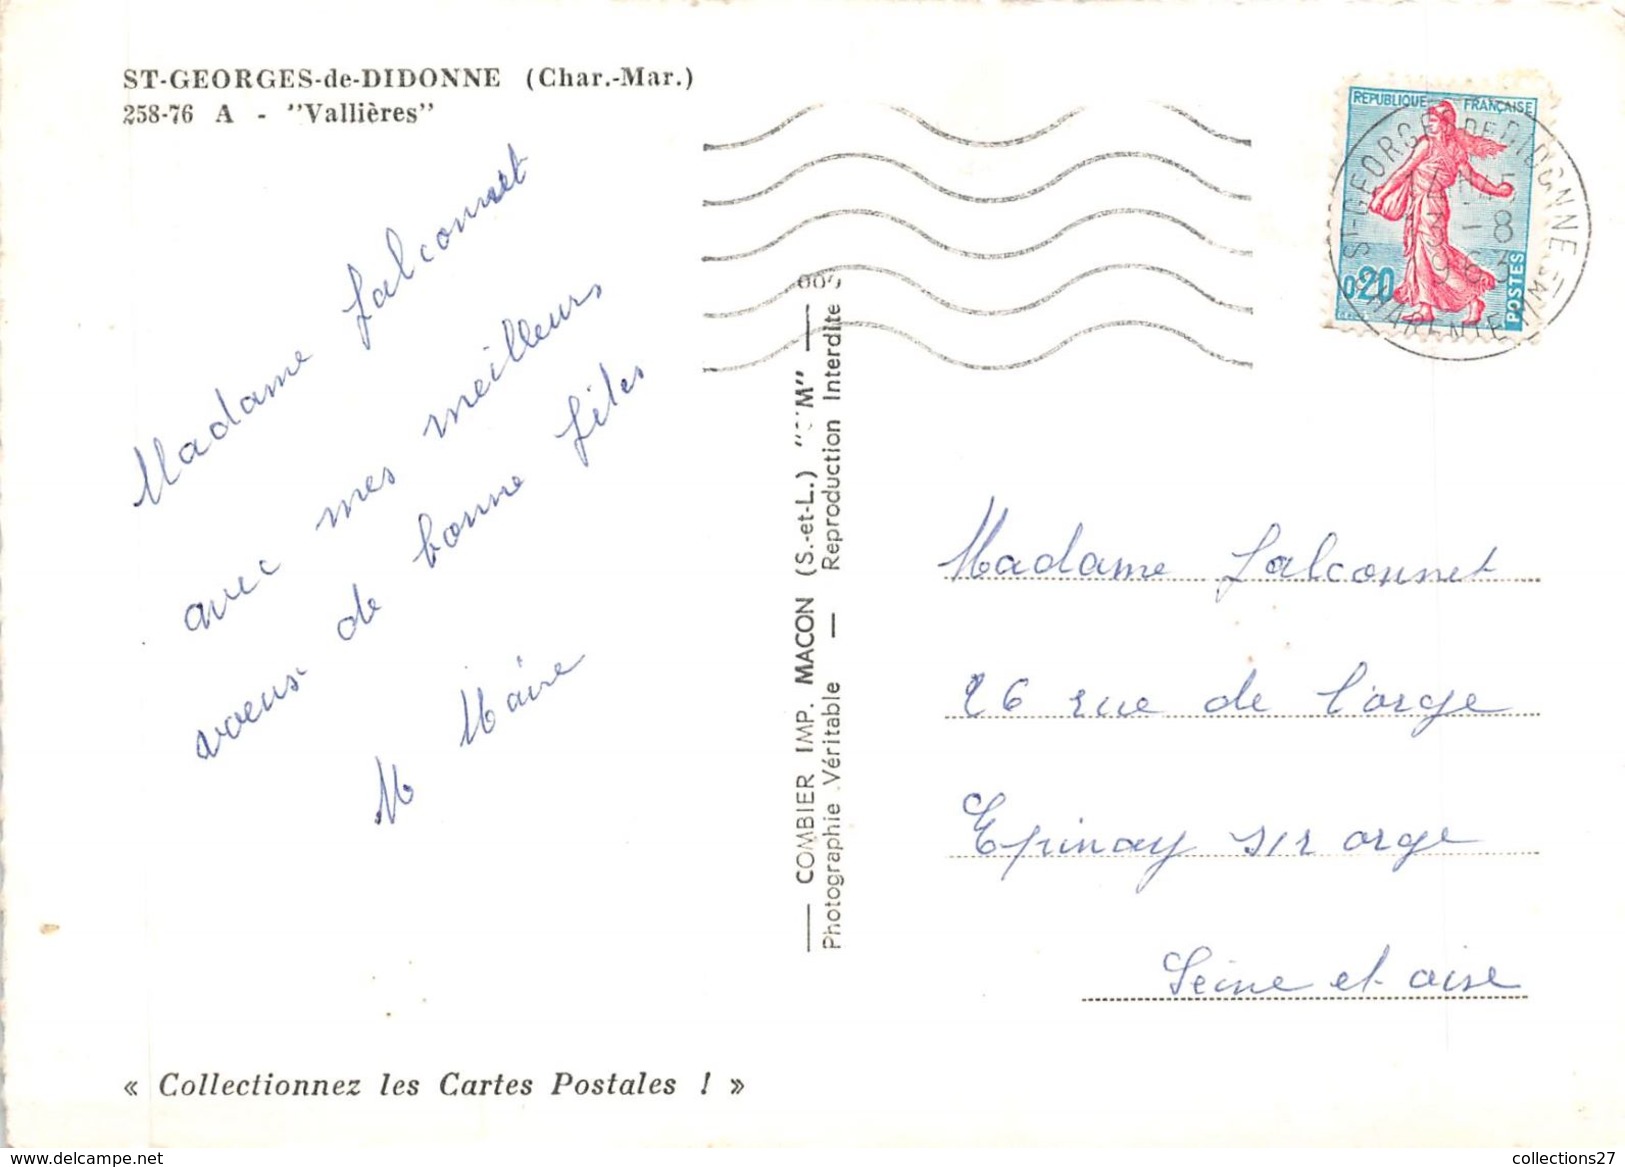 ST-GEORGES-de-DIDONNE (Char.-Mar.)
258-76 A - "Vallières"
Madame Falconnet
avec mes meilleurs
voeux de bonne fêtes
M Maire
COMBIER IMP. MACON (S.-et-L.) "CIM"
Photographie Véritable — Reproduction Interdite
REPUBLIQUE FRANÇAISE
0,20
POSTES
ST-GEORGES DE DIDONNE
13 -8
1963
CHARENTE MME
Madame Falconnet
26 rue de l'orge
Epinay s/r orge
Seine et oise
« Collectionnez les Cartes Postales ! »
www.delcampe.net
collections27